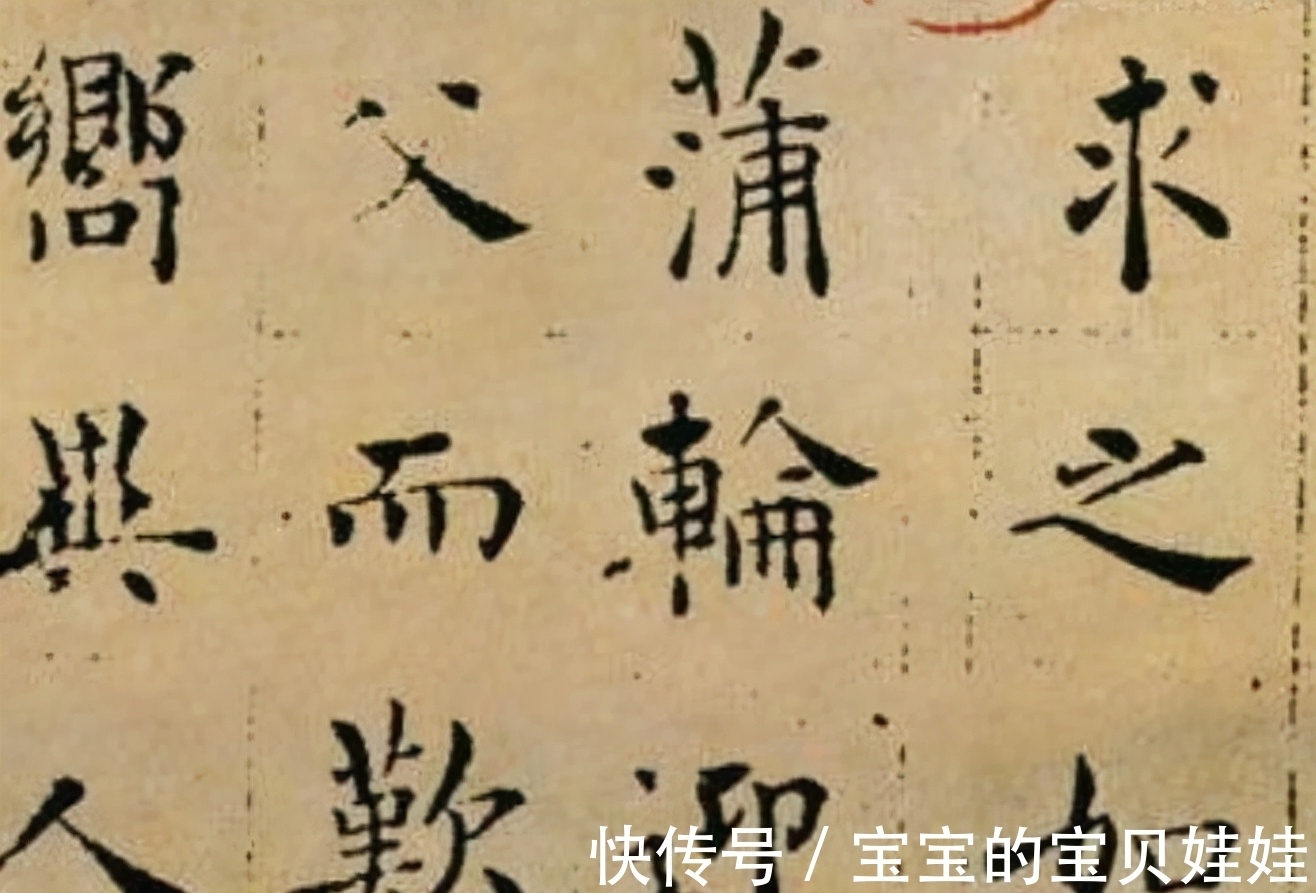 求之
蒲輪迎
父而歎
嚮與人
快传号/宝宝的宝贝娃娃